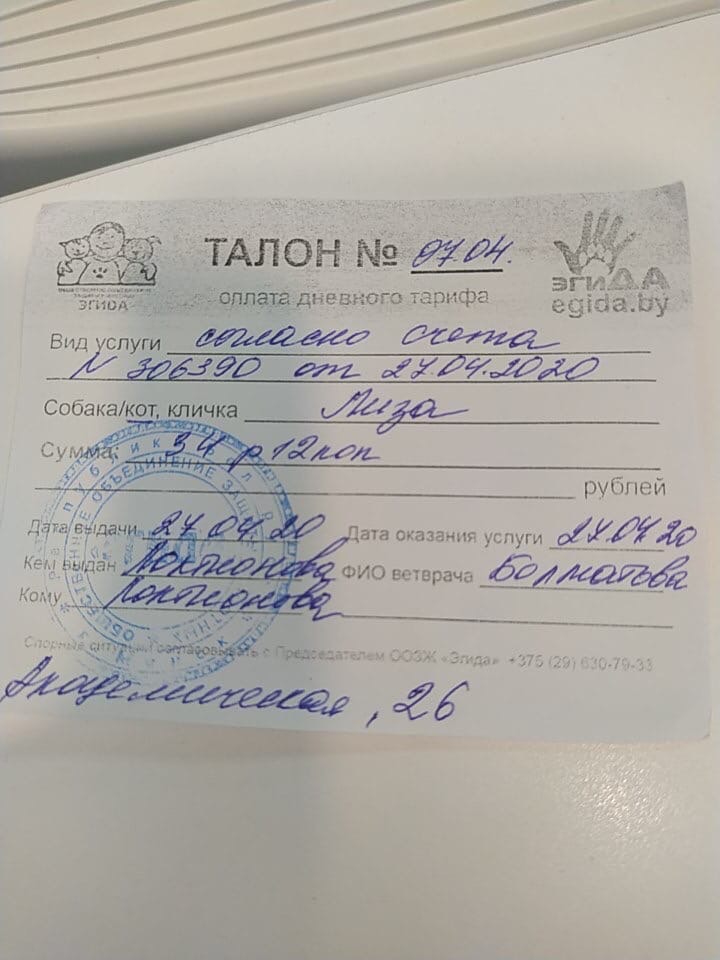 ТАЛОН № 07.04.
оплата дневного тарифа
ЭГИДА
ЭГИДА
egida.by
Вид услуги согласно счета
N 306390 от 27.04.2020
Собака/кот, кличка Лиза
Сумма: 34 р 12 коп
рублей
Дата выдачи 27.04.20 Дата оказания услуги 27.04.20
Кем выдан Локтионова ФИО ветврача Болматова
Кому Локтионова
Спорные ситуации согласовывать с Председателем ООЗЖ «Эгида» +375 (29) 630-79-33
Академическая, 26
ОБЩЕСТВЕННОЕ ОБЪЕДИНЕНИЕ ЗАЩИТЫ